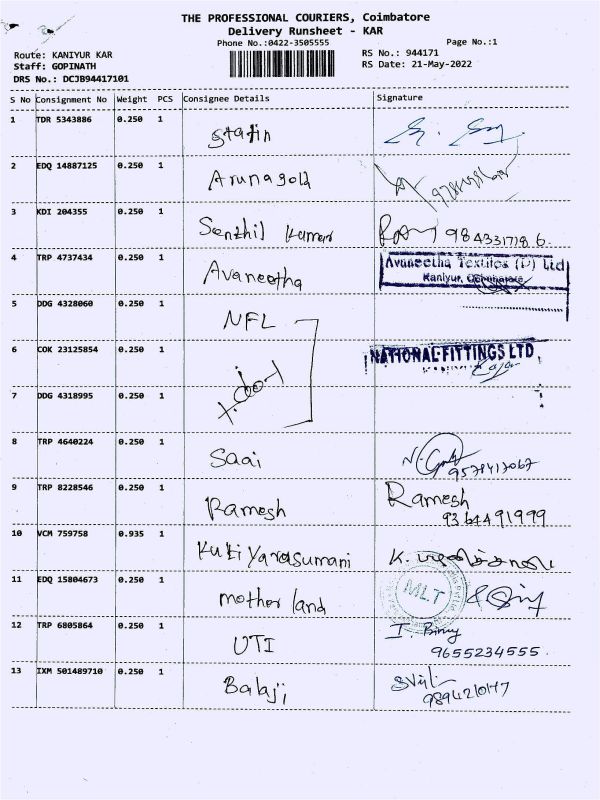 THE PROFESSIONAL COURIERS, Coimbatore
Delivery Runsheet - KAR
Phone No.:0422-3505555
Page No.:1
Route: KANIYUR KAR
RS No.: 944171
Staff: GOPINATH
RS Date: 21-May-2022
DRS No.: DCJB94417101
S No Consignment No Weight PCS Consignee Details Signature
1 TDR 5343886 0.250 1 Stafin
2 EDQ 14887125 0.250 1 Arunagold
3 KDI 204355 0.250 1 Senthil Kumar 9843317186.
4 TRP 4737434 0.250 1 Avaneetha Avaneetha Textiles (P) Ltd
Kaniyur, Coimbatore
5 DDG 4328060 0.250 1 NFL
6 COK 23125854 0.250 1 NATIONAL FITTINGS LTD
7 DDG 4318995 0.250 1
8 TRP 4640224 0.250 1 Saai
9578417067
9 TRP 8228546 0.250 1 Ramesh Ramesh
9364491999
10 VCM 759758 0.935 1 Kutiyarasumani K.
11 EDQ 15804673 0.250 1 mother land MLT
12 TRP 6805864 0.250 1 UTI
9655234555.
13 IXM 501489710 0.250 1 Balaji
9894210147